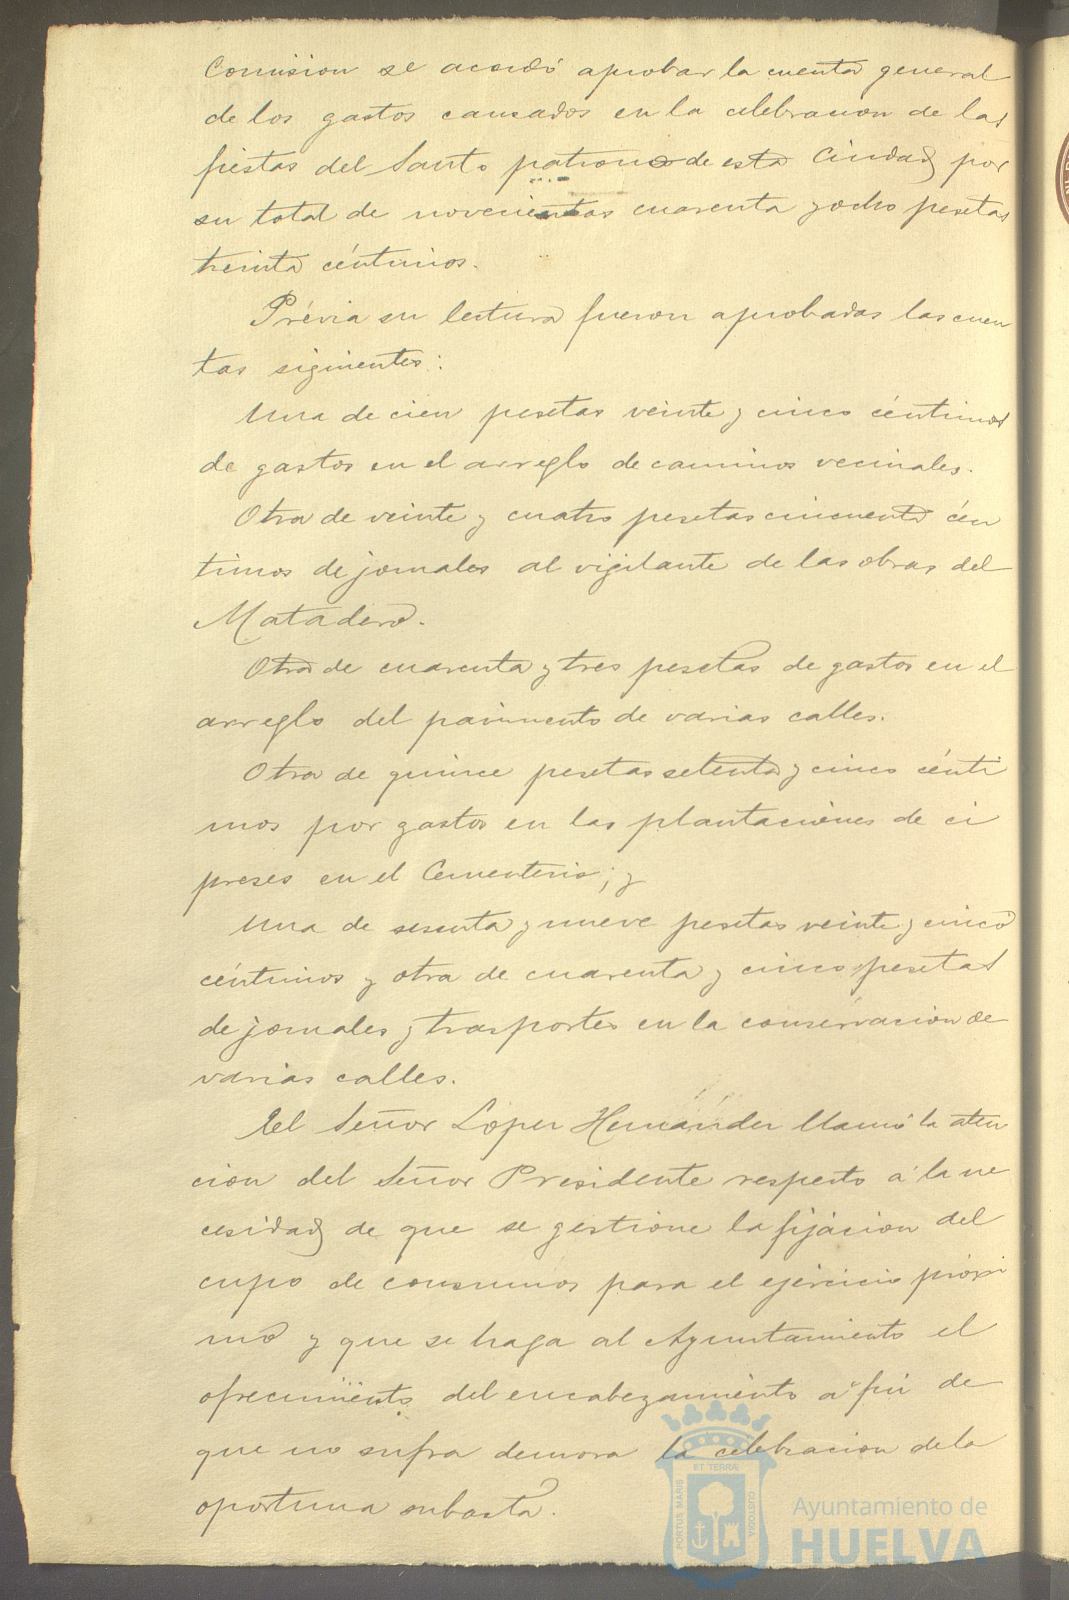 Comision se acordó aprobar la cuenta general
de los gastos causados en la celebracion de las
fiestas del Santo patrono de esta Ciudad por
su total de novecientas cuarenta y ocho pesetas
treinta céntimos.
Prévia su lectura fueron aprobadas las cuen
tas siguientes:
Una de cien pesetas veinte y cinco céntimos
de gastos en el arreglo de caminos vecinales.
Otra de veinte y cuatro pesetas cincuenta cén
timos de jornales al vigilante de las obras del
Matadero.
Otra de cuarenta y tres pesetas de gastos en el
arreglo del pavimento de varias calles.
Otra de quince pesetas setenta y cinco cénti
mos por gastos en las plantaciones de ci
preses en el Cementerio; y
Una de sesenta y nueve pesetas veinte y cinco
céntimos y otra de cuarenta y cinco pesetas
de jornales y trasportes en la conservacion de
varias calles.
El Señor López Hernández llamó la aten
cion del Señor Presidente respecto á la ne
cesidad de que se gestione la fijacion del
cupo de consumos para el ejercicio próxi
mo y que se haga al Ayuntamiento el
ofrecimiento del encabezamiento á fin de
que no sufra demora la celebracion de la
oportuna subasta.
PORTUS MARIS
ET TERRÆ
CUSTODIA
Ayuntamiento de
HUELVA